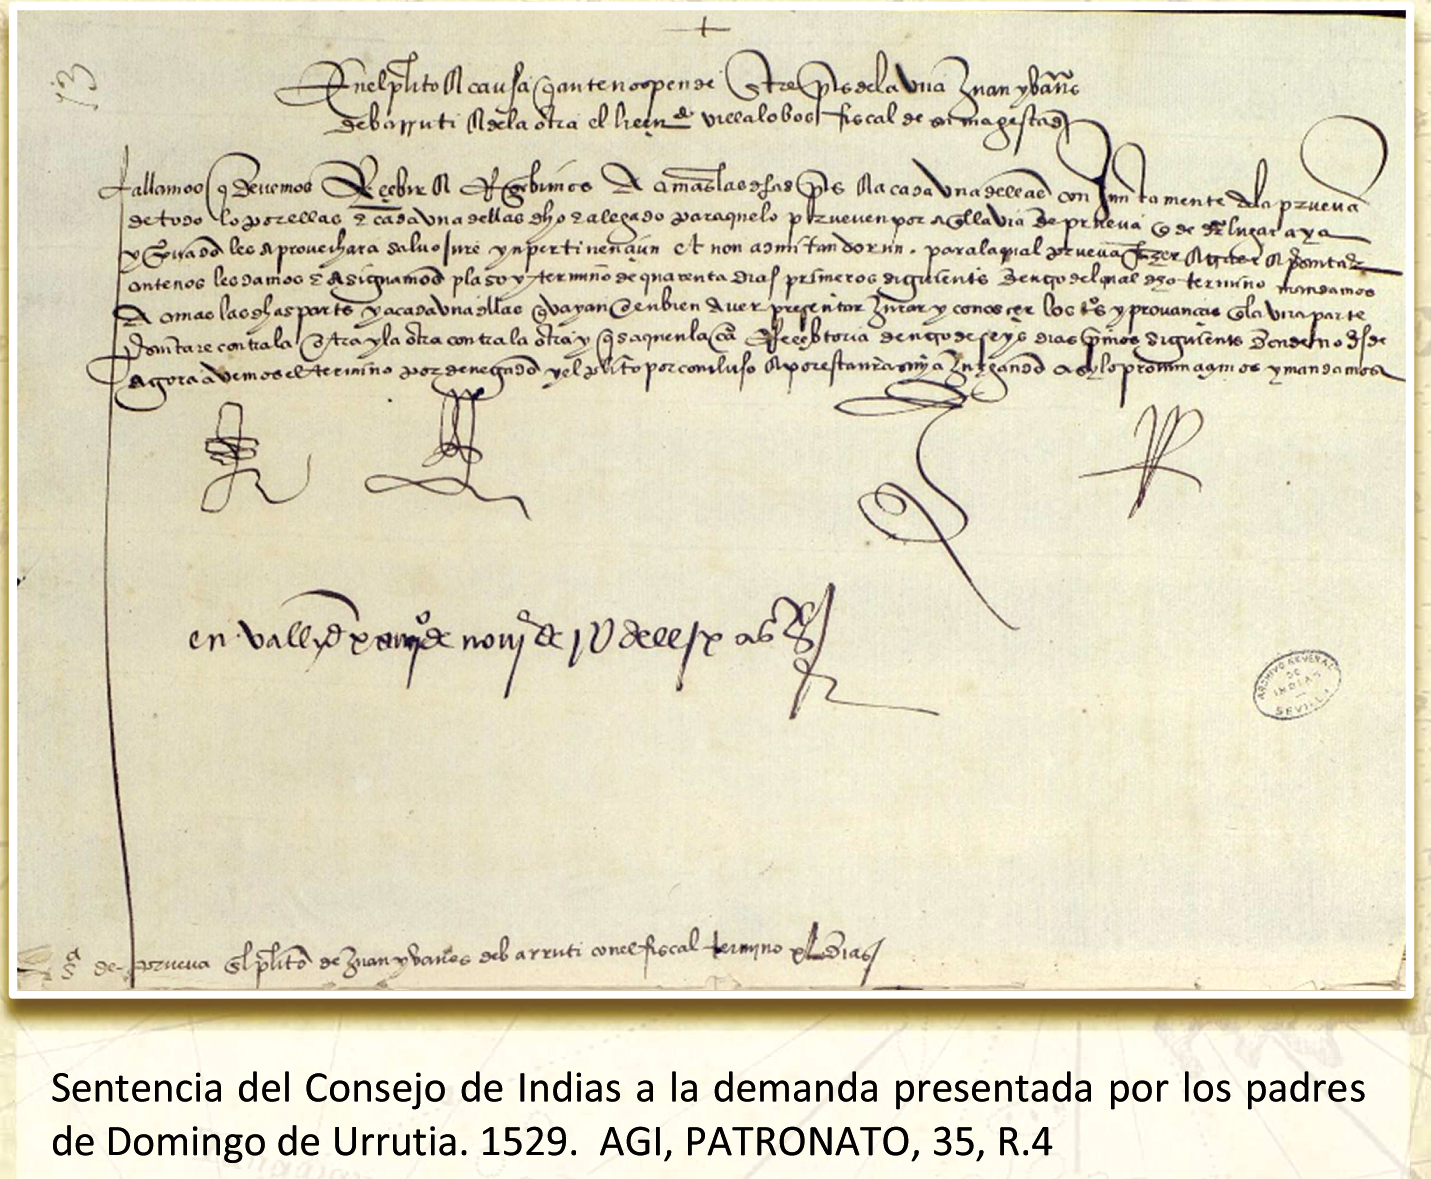 13
En el plito & causa q ante nos pende entre ptes dela una Juan ybañes
de barruti & dela otra el licendo villalobos fiscal de su magestad
fallamos q devemos Recebir & Recebimos a amas las dhas ptes & a cada una dellas conjuntamente ala prueva
de todo lo por ellas e cada una dellas dho e alegado para que lo prueven por aqlla via de prueva q de dro lugar aya
y provado les aprovechara salvo jure ynpertinenciun et non admitandorun. para la qual prueva fazer & traer & psentar
ante nos les damos e asignamos plaso y termino de quarenta dias primeros siguients dengo del qual dho termino mandamos
a amas las dhas parts y a cada una dllas q vayan o enbien a ver presentar jurar y conoscer los tos y provanças q la una parte
psentare contra la otra y la otra contra la otra y q saquen la carta Recebtoria dengo de seys dias pmos siguients donde no dsde
agora avemos el termino por denegado y el plito por concluso & por esta nra snya juzgando asy lo pronunciamos y mandamos
en vallid x de novi de 1U dxxix as
sa de prueva el plito de Juan ybañes de barruti con el fiscal termino xl dias
ARCHIVO GENERAL DE INDIAS SEVILLA
Sentencia del Consejo de Indias a la demanda presentada por los padres
de Domingo de Urrutia. 1529. AGI, PATRONATO, 35, R.4